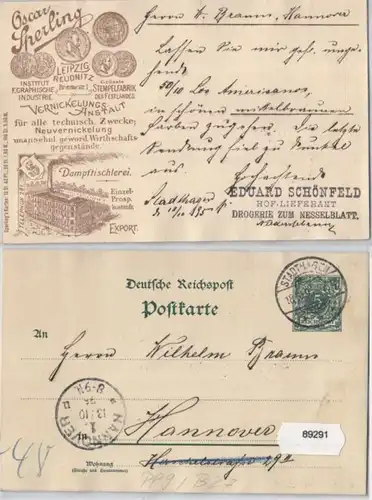 Oscar
Sperling
LEIPZIG
REUDNITZ
INSTITUT
INDUSTRIE
STEMPELFABRIK
VERNICKELUNGS-
ANSTALT
für alle technisch. Zwecke;
Neuvernickelung
unansehnl. geword. Wirthschafts-
gegenstände.
Dampftischlerei.
Einzel-
Prosp.
kostenfr.
EXPORT.
Herrn W. Brauns, Hannover
Lassen Sie mir gefl. umge-
hende
50/10 Los Amerisanos,
in schönen mittelbraunen
Farben zugehen. Die letzte
Sendung fiel zu dunkel
aus.
Hochachtend
Stadthagen
EDUARD SCHÖNFELD
HOF-LIEFERANT
DROGERIE ZUM NESSELBLATT.
Deutsche Reichspost
Postkarte
STADTHAGEN
5
An
Herrn Wilhelm Brauns
HANNOVER
13/10
8-9N.
1
in Hannover
89291
Wohnung
(Straße und Hausnummer)
29a